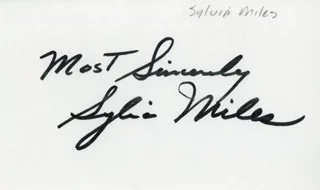 Sylvia Miles
Most Sincerely
Sylvia Miles